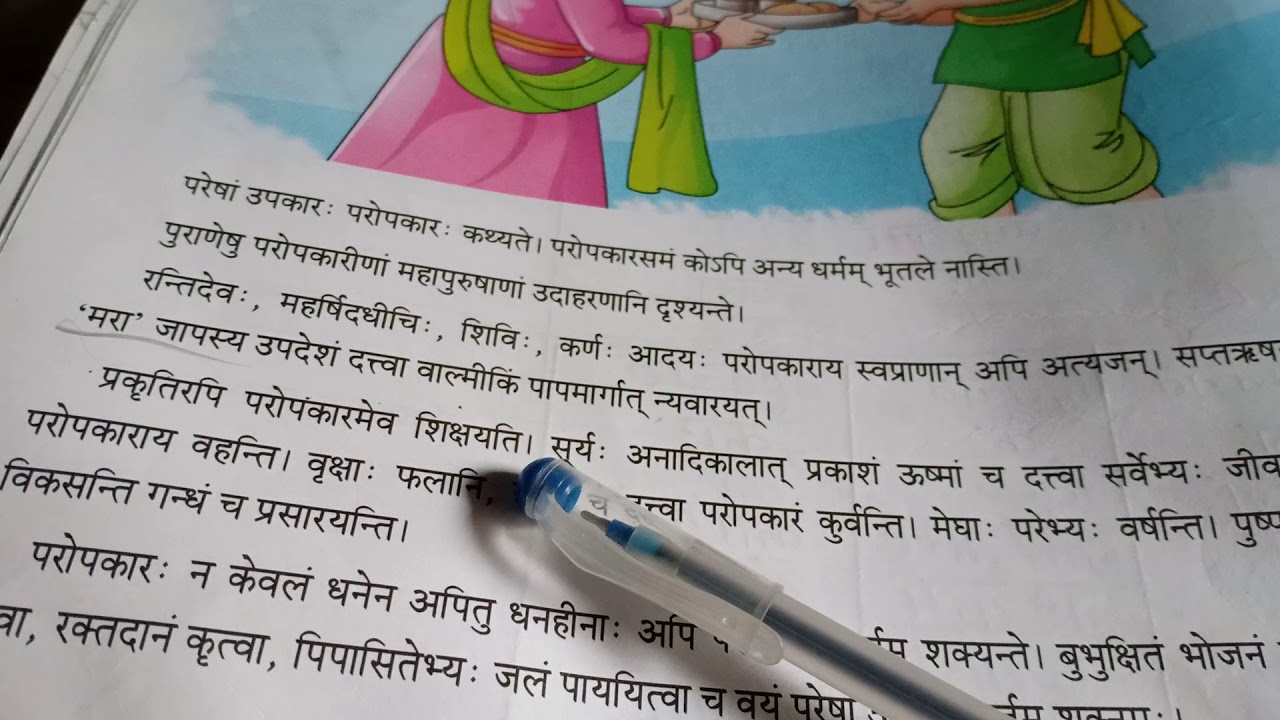 परेषां उपकारः परोपकारः कथ्यते। परोपकारसमं कोऽपि अन्य धर्मम् भूतले नास्ति।
पुराणेषु परोपकारीणां महापुरुषाणां उदाहरणानि दृश्यन्ते।
रन्तिदेवः, महर्षिदधीचिः, शिविः, कर्णः आदयः परोपकाराय स्वप्राणान् अपि अत्यजन्। सप्तऋष
‘मरा’ जापस्य उपदेशं दत्त्वा वाल्मीकिं पापमार्गात् न्यवारयत्।
प्रकृतिरपि परोपकारमेव शिक्षयति। सूर्यः अनादिकालात् प्रकाशं ऊष्मां च दत्त्वा सर्वेभ्यः जीव
परोपकाराय वहन्ति। वृक्षाः फलानि, च दत्त्वा परोपकारं कुर्वन्ति। मेघाः परेभ्यः वर्षन्ति। पुष्प
विकसन्ति गन्धं च प्रसारयन्ति।
परोपकारः न केवलं धनेन अपितु धनहीनाः अपि शक्यन्ते। बुभुक्षितं भोजनं
रक्तदानं कृत्वा, पिपासितेभ्यः जलं पाययित्वा च वयं परेषां